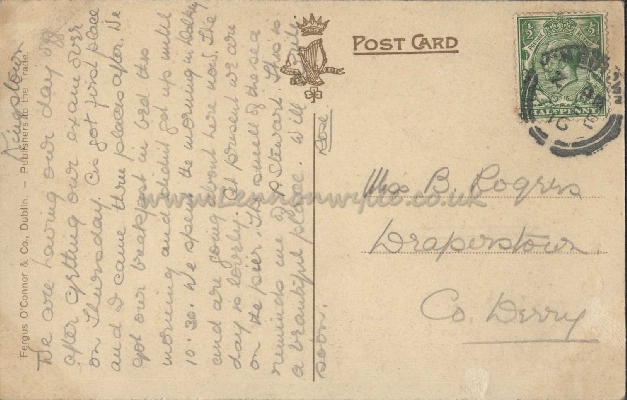 POST CARD
Fergus O'Connor & Co., Dublin. – Publishers to the Trade.
Kingstown
We are having our day off
after getting our exam over
on Thursday. Cis got first place
and I came three places after. We
got our breakfast in bed this
morning and didn't get up until
10.30. We spent the morning in Dalkey
and are going about here now. The
day is lovely. At present we are
on the pier. The smell of the sea
reminds me of P. Stewart. This is
a beautiful place. Will write
soon.
Rose
HALFPENNY
Miss B. Rogers
Draperstown
Co. Derry
www.lennonwylie.co.uk